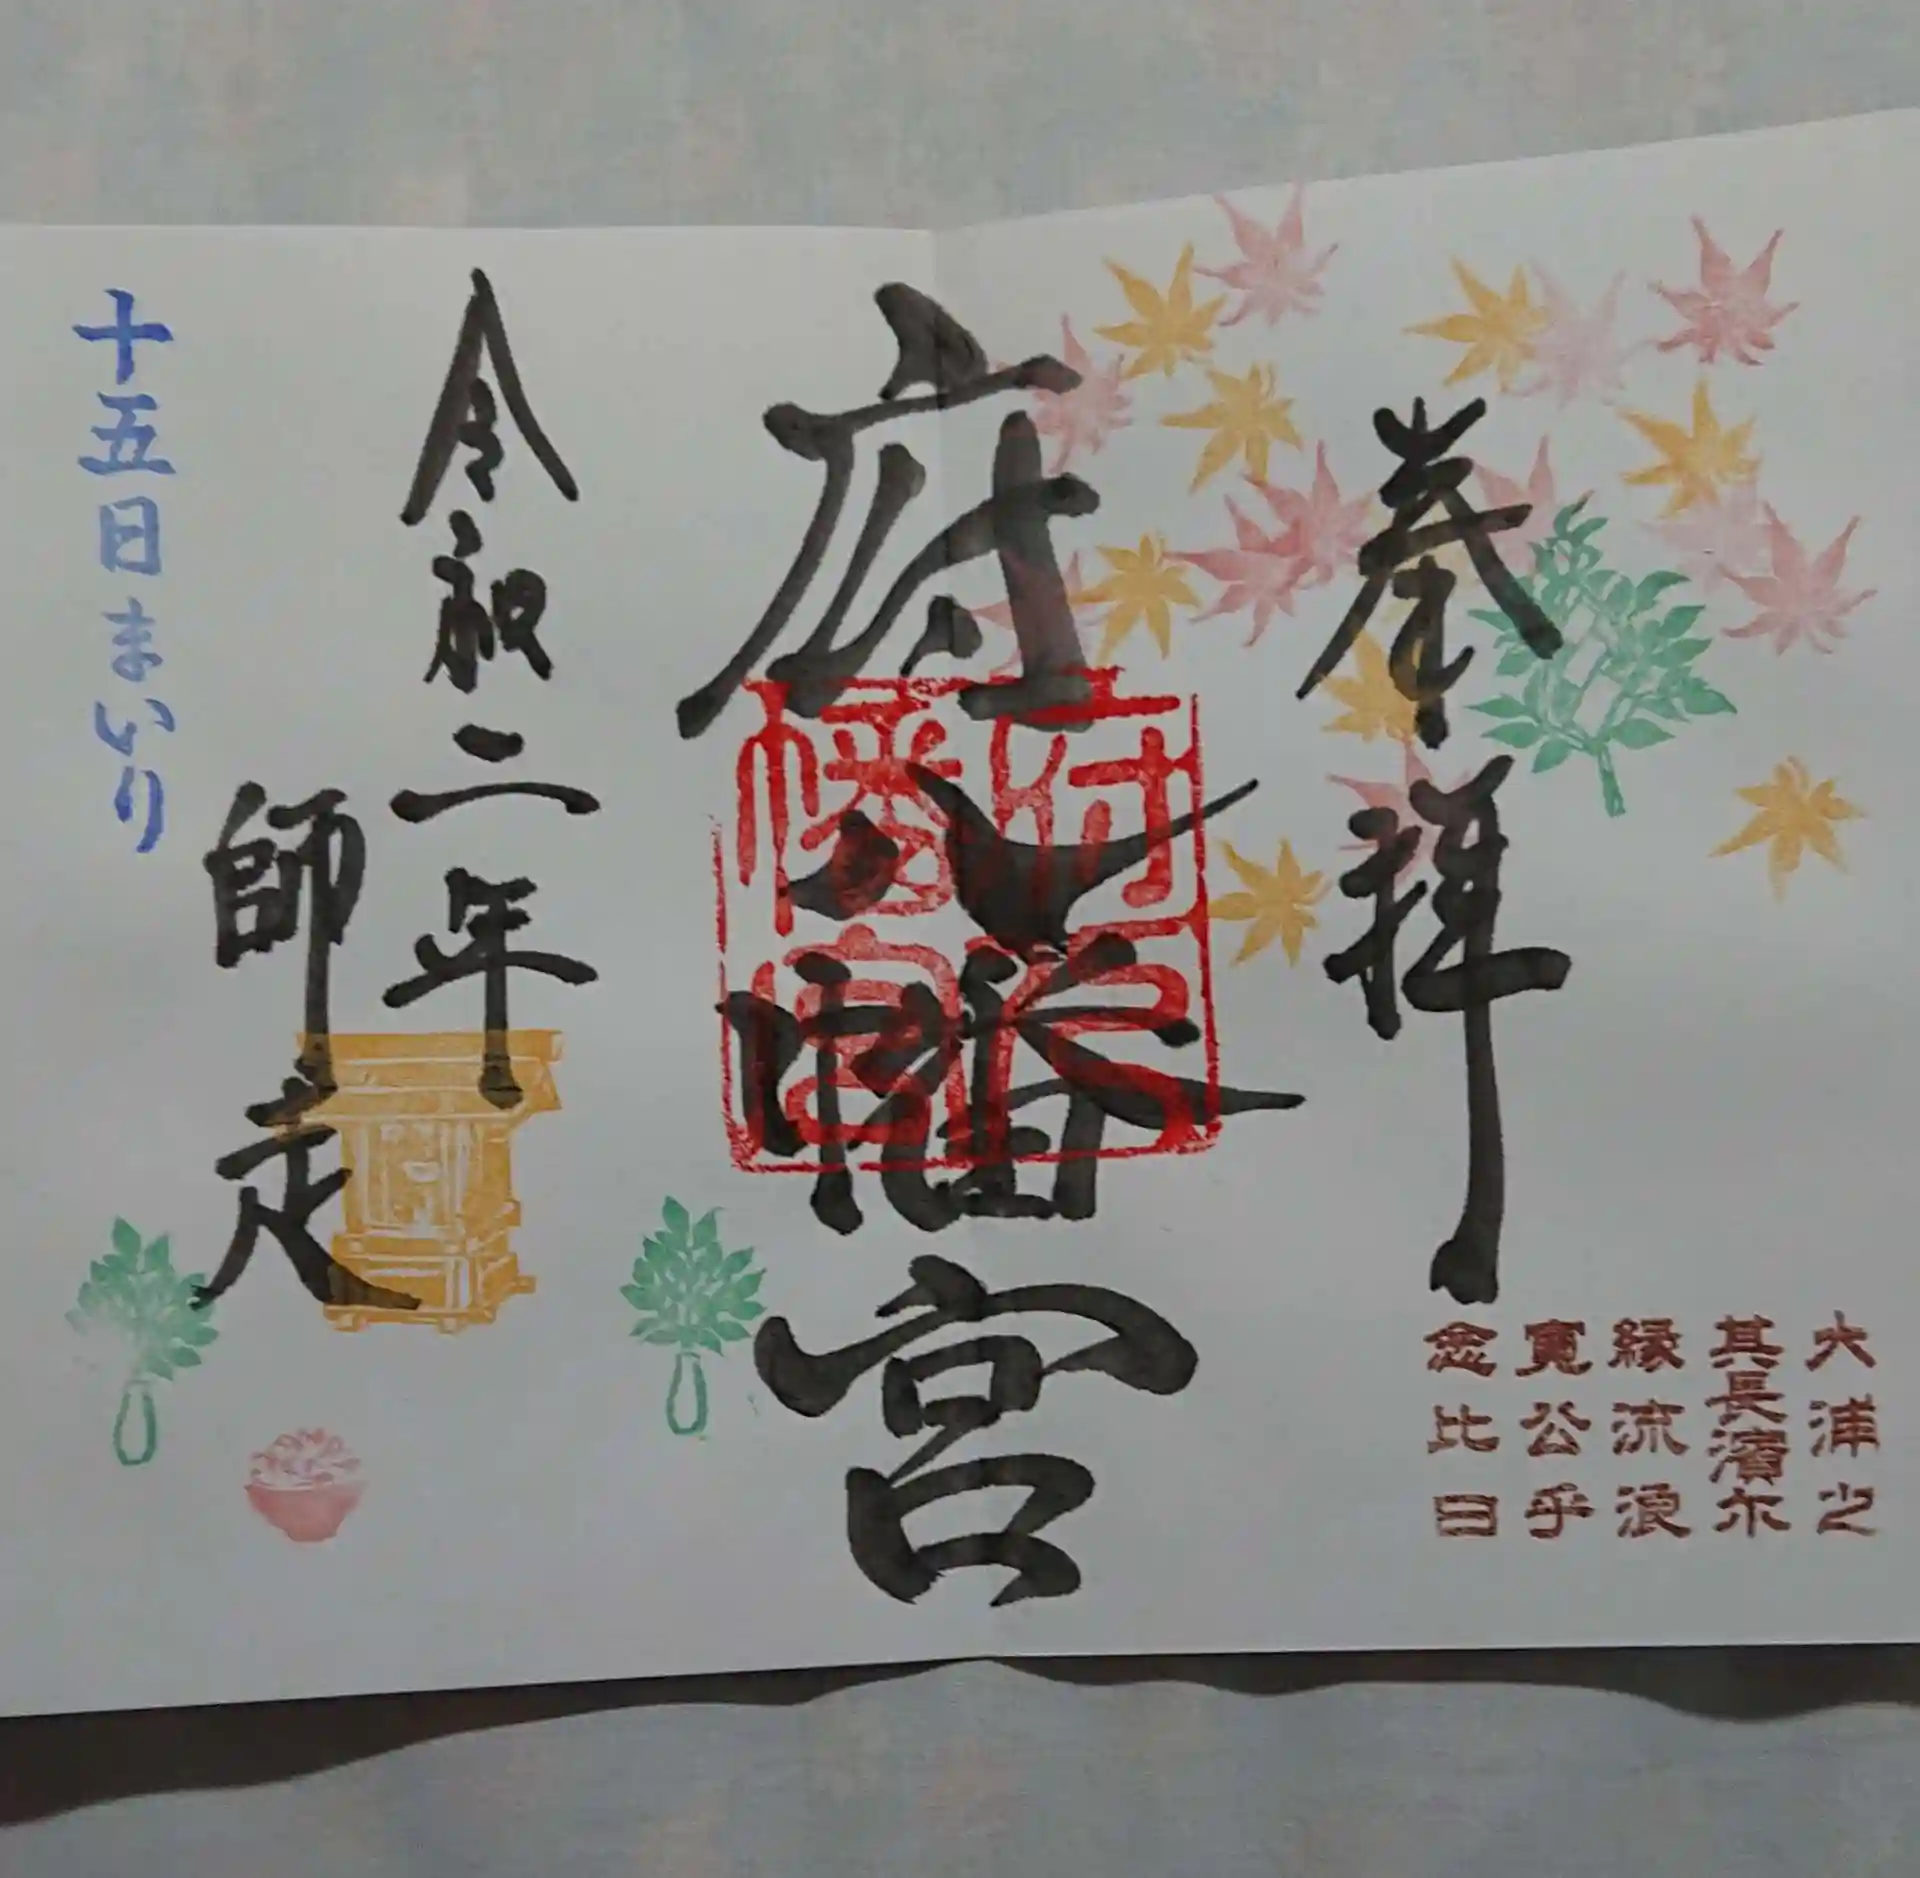 奉拝
大浦之
其長濱尓
縁流浪
寛公乎
念比日
府八幡宮
府八
幡宮
令和二年
師走
十五日まいり